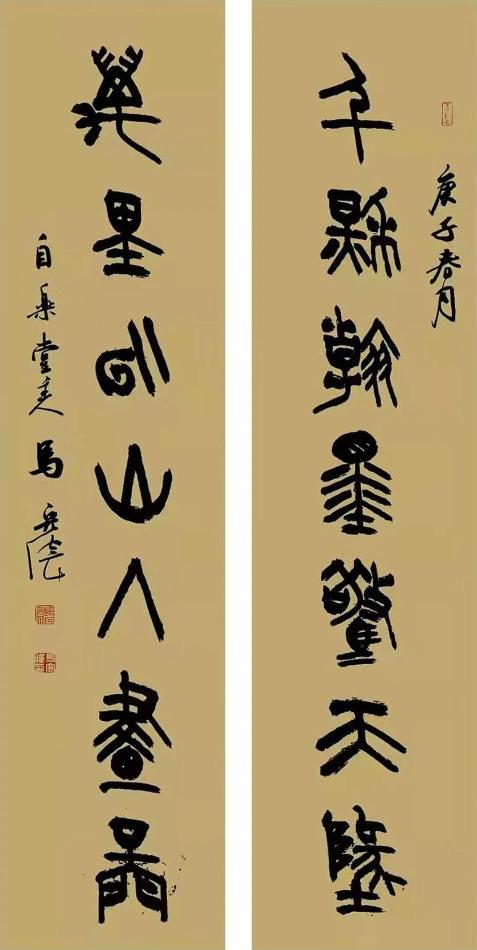 庚子春月
千縣翰墨驚天地
萬里山入畫
自樂堂主人馬